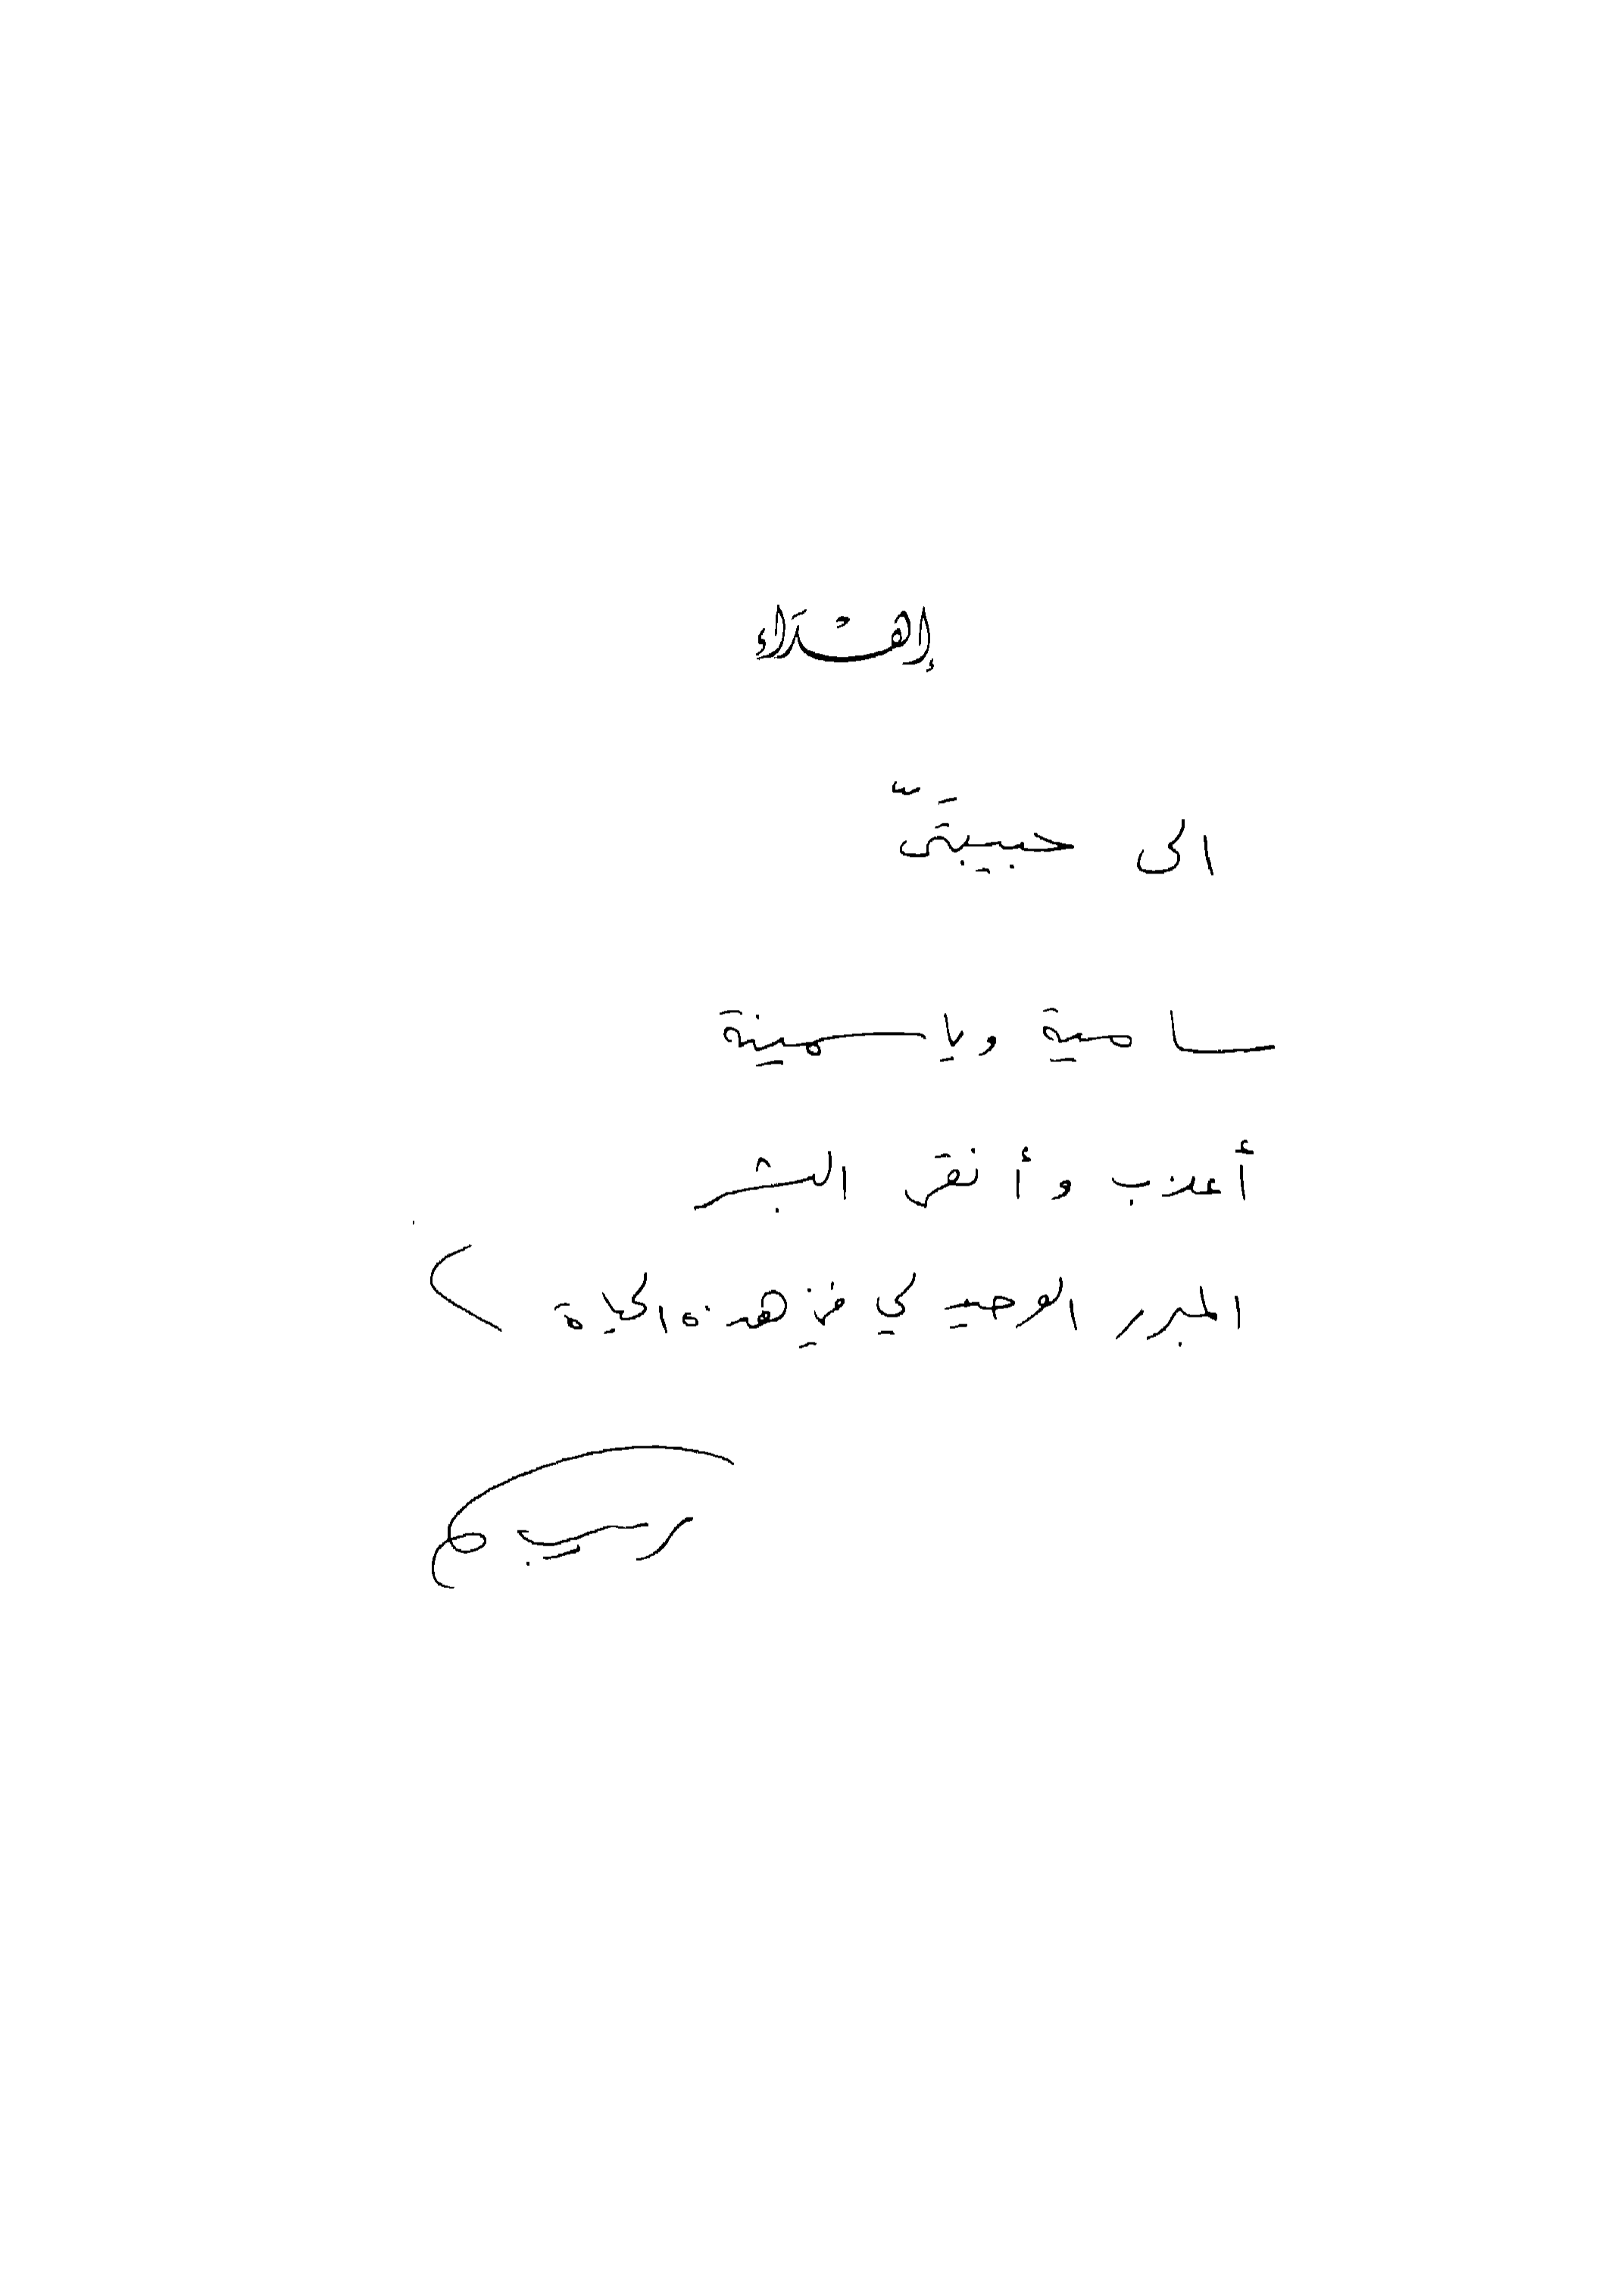 إهْدَاء
الى حبيبتَيّ
سامية وياسمينة
أعذب وأنقى البشر
المبرر الوحيد لي في هذه الحياة